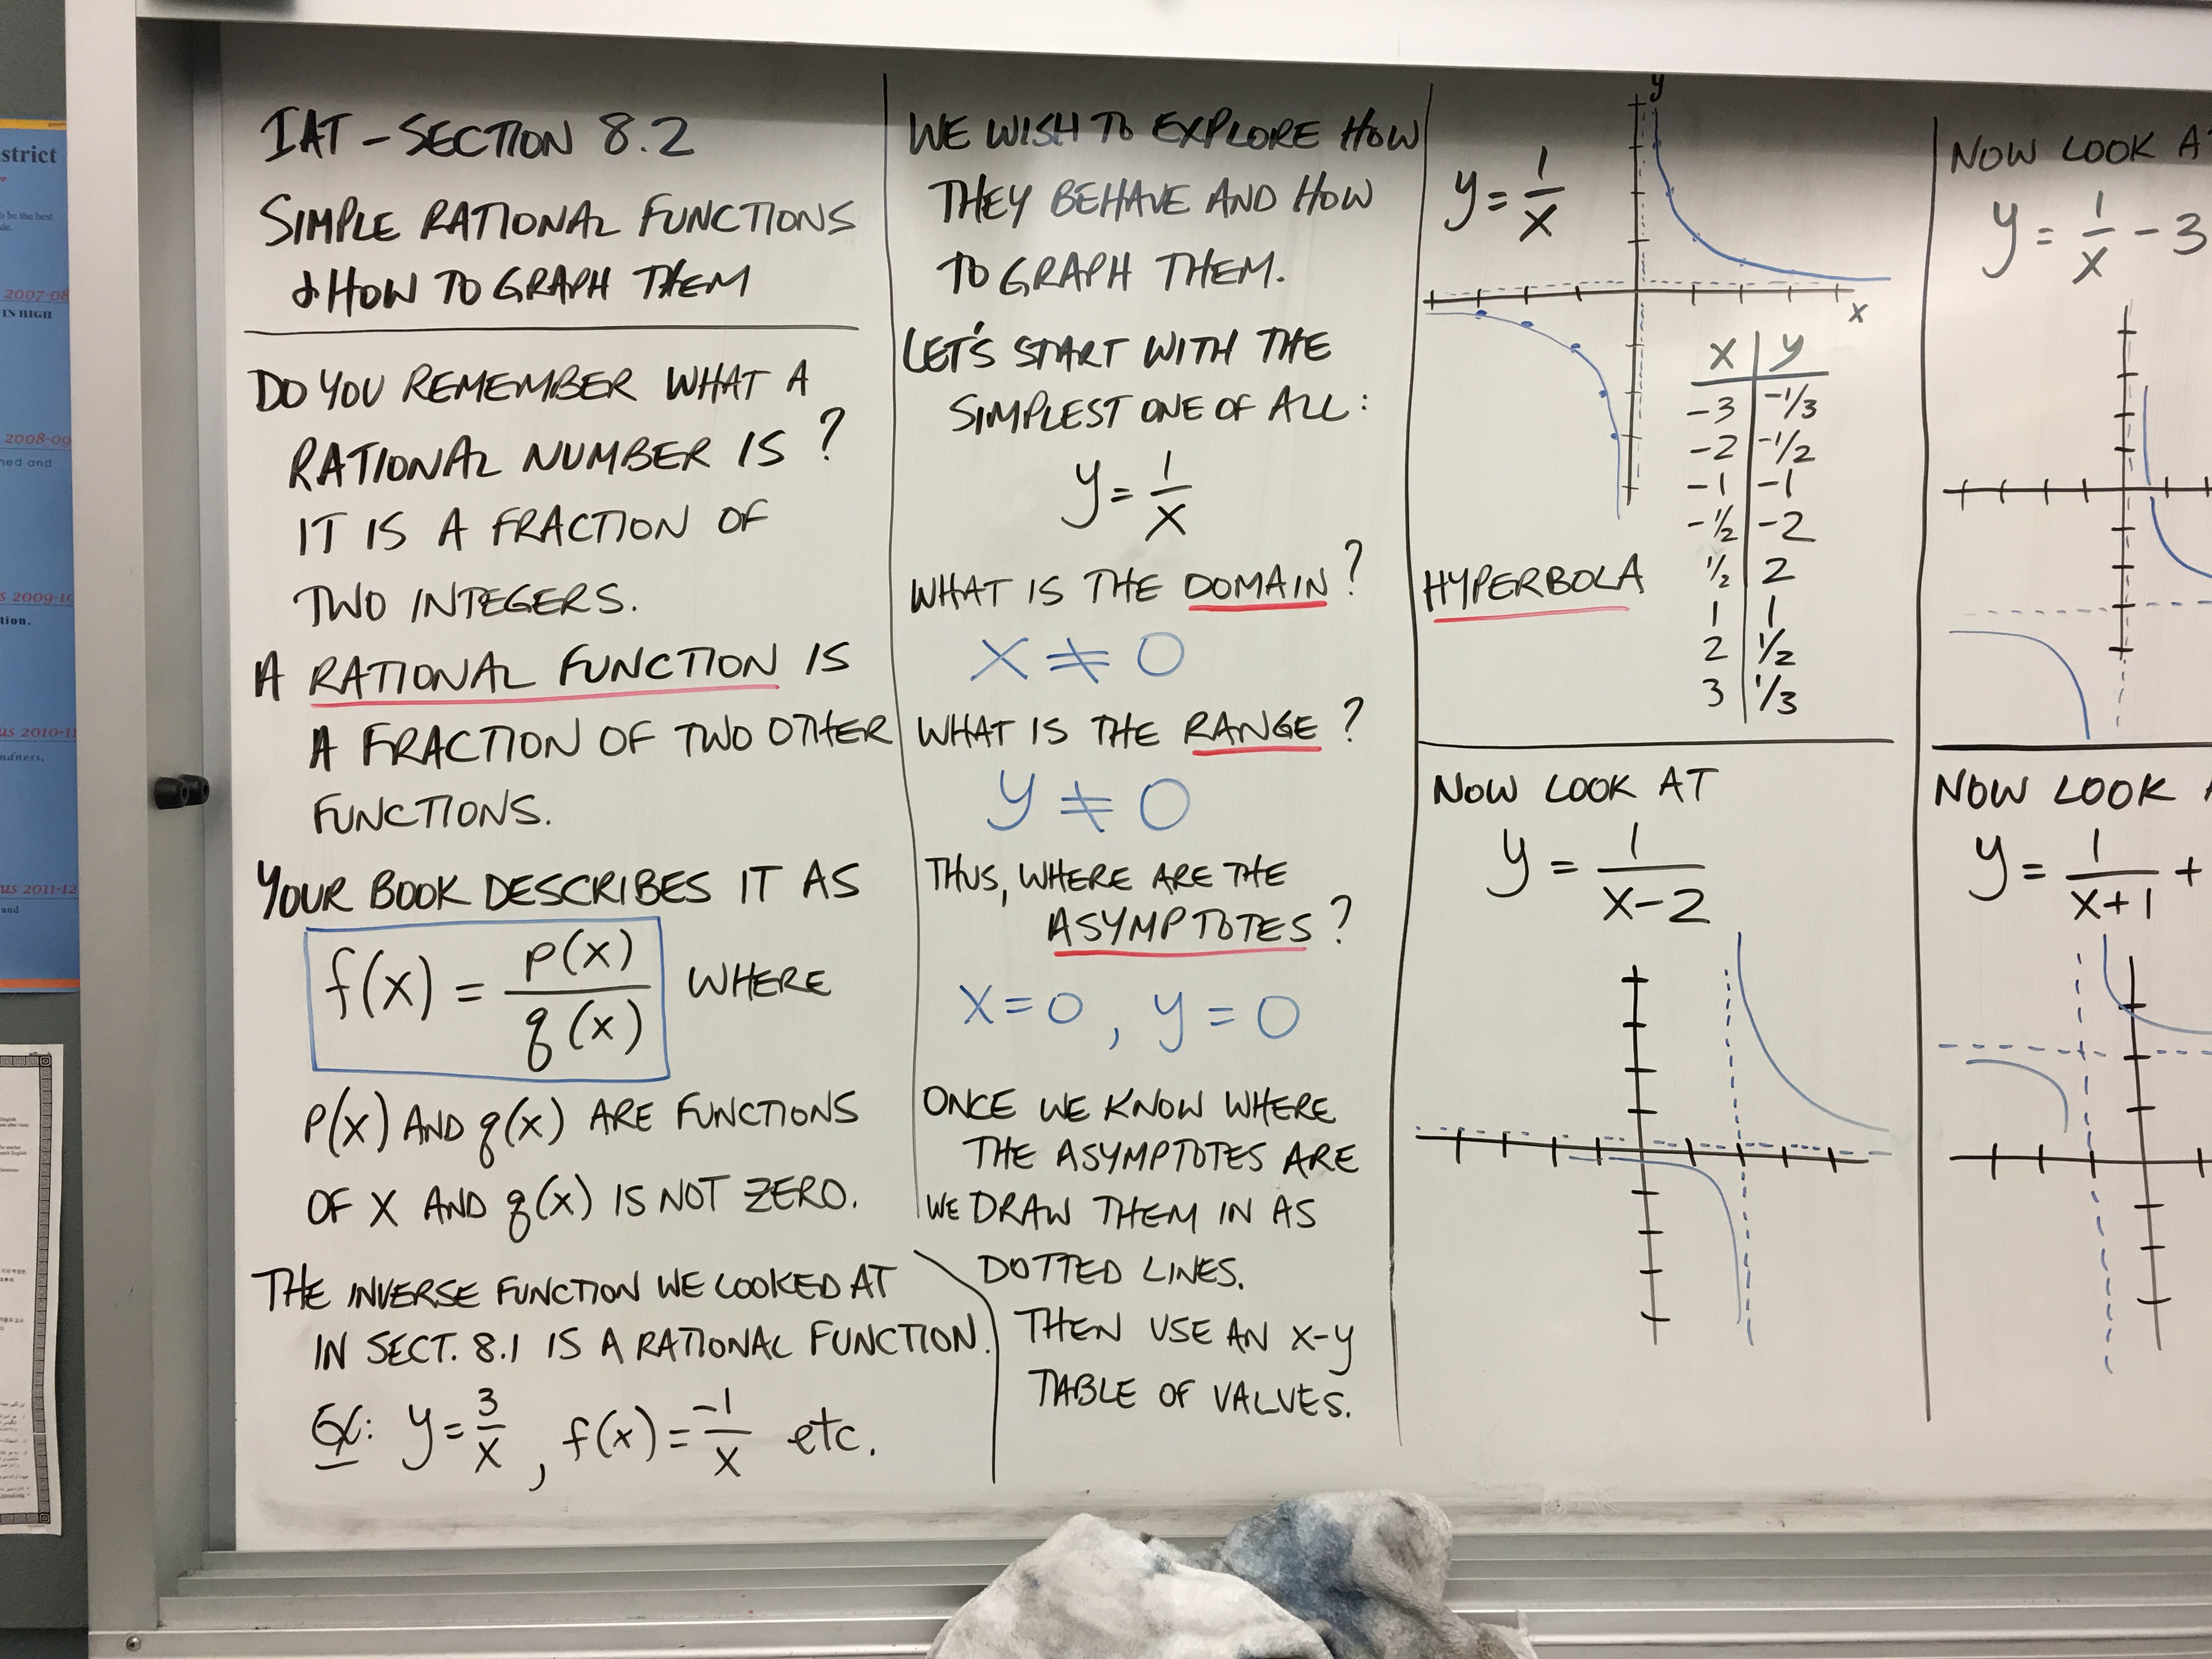 IAT - SECTION 8.2
SIMPLE RATIONAL FUNCTIONS
& HOW TO GRAPH THEM
DO YOU REMEMBER WHAT A
RATIONAL NUMBER IS?
IT IS A FRACTION OF
TWO INTEGERS.
A RATIONAL FUNCTION IS
A FRACTION OF TWO OTHER
FUNCTIONS.
YOUR BOOK DESCRIBES IT AS
f(x) = p(x)/q(x) WHERE
p(x) AND q(x) ARE FUNCTIONS
OF X AND q(x) IS NOT ZERO.
THE INVERSE FUNCTION WE LOOKED AT
IN SECT. 8.1 IS A RATIONAL FUNCTION.
EX: y = 3/x , f(x) = -1/x etc.
WE WISH TO EXPLORE HOW
THEY BEHAVE AND HOW
TO GRAPH THEM.
LET'S START WITH THE
SIMPLEST ONE OF ALL:
y = 1/x
WHAT IS THE DOMAIN?
x ≠ 0
WHAT IS THE RANGE?
y ≠ 0
THUS, WHERE ARE THE
ASYMPTOTES?
x = 0 , y = 0
ONCE WE KNOW WHERE
THE ASYMPTOTES ARE
WE DRAW THEM IN AS
DOTTED LINES.
THEN USE AN x-y
TABLE OF VALUES.
y
y = 1/x
x
x | y
-3 | -1/3
-2 | -1/2
-1 | -1
-1/2 | -2
1/2 | 2
1 | 1
2 | 1/2
3 | 1/3
HYPERBOLA
NOW LOOK AT
y = 1/(x-2)
NOW LOOK
y = 1/x - 3
NOW LOOK
y = 1/(x+1) +
strict
to be the best
2007-08
IN HIGH
2008-09
ned and
2009-10
tion.
us 2010-11
ndness.
us 2011-12
and